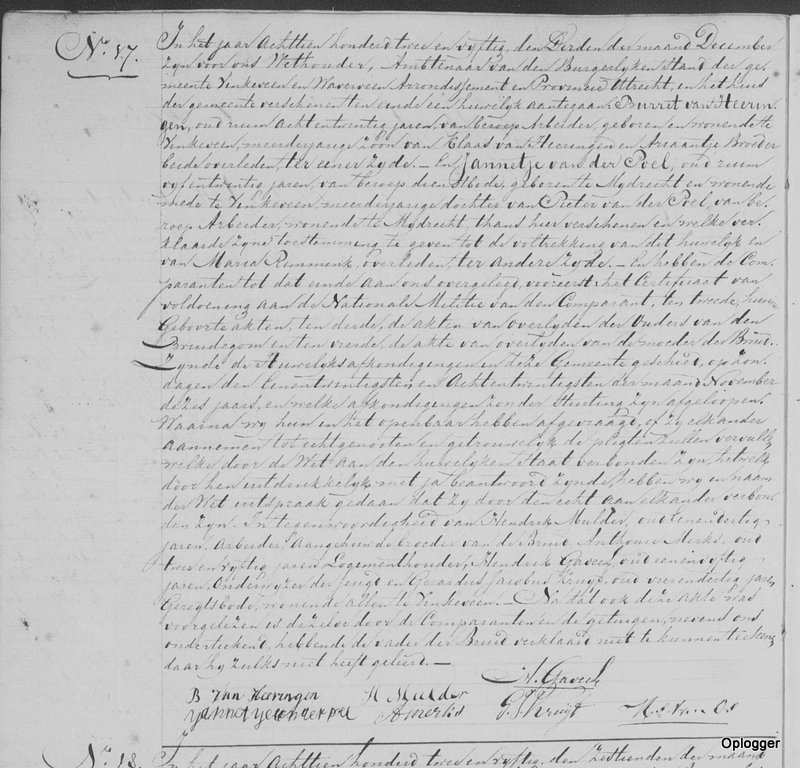 No. 37.
In het jaar Achttien honderd twee en vyftig, den Derden der maand December
zyn voor ons Wethouder, Ambtenaar van den Burgerlyken Stand der ge-
meente Vinkeveen en Waverveen Arrondissement en Provincie Utrecht, in het huis
der gemeente verschenen ten einde een huwelyk aantegaan, Burret van Heerin-
gen, oud ruim acht en twintig jaren, van beroep Arbeider, geboren en wonende te
Vinkeveen, meerderjarige zoon van Klaas van Heeringen en Ariaantje Broeder
beide overleden, ter eener zyde. – En Jannetje van der Poel, oud ruim
vyf en twintig jaren, van beroep dienstbode, geboren te Mydrecht en wonende
mede te Vinkeveen, meerderjarige dochter van Pieter van der Poel, van be-
roep Arbeider, wonende te Mydrecht, thans hier verschenen en welke ver-
klaarde zyne toestemming te geven tot de voltrekking van dit huwelyk en
van Maria Remmink, overleden, ter andere zyde. – En hebben de Com-
paranten tot dat einde aan ons overgelegd, vooreerst: het Certificaat van
voldoening aan de Nationale Militie van den Comparant, ten tweede, hunne
Geboorteakten, ten derde, de akten van overlyden der Ouders van den
Bruidegom en ten vierde, de akte van overlyden van de moeder der Bruid.
Zynde de Huwelyksafkondigingen in deze Gemeente geschied, op zon-
dagen den Eenentwintigsten en Achtentwintigsten der maand November
dezes jaars, en welke afkondigingen zonder stuiting zyn afgeloopen.
Waarna wy hun in het openbaar hebben afgevraagd, of zy elkander
aannemen tot echtgenooten en getrouwelyk de plegten zullen vervullen
welke door de Wet aan den huwelyken staat verbonden zyn, hetwelk
door hen uitdrukkelyk met ja beantwoord zynde, hebben wy in naam
der Wet uitspraak gedaan dat zy door den echt aan elkander verbon-
den zyn. In tegenwoordigheid van Hendrik Mulder, oud eenendertig
jaren, Arbeider, Aangehuwde broeder van de Bruid, Anthonie Merks, oud
twee en vyftig jaren, Logementhouder, Hendrik Gaveel, oud een en vyftig
jaren, Onderwyzer der jeugd en Gerardus Jacobus Kruyt, oud vierendertig jaren
Geregtsbode, wonende allen te Vinkeveen. – Na dat ook deze akte was
voorgelezen is dezelve door de Comparanten en de getuigen, nevens ons
onderteekend, hebbende de vader der Bruid verklaard niet te kunnen teekenen
daar hy zulks niet heeft geleerd. –
H. Gaveel
B van Heeringen H Mulder
Jannetje van der poel A merks G. J. Kruyt
No. 38. In het jaar Achttien honderd twee en vyftig, den zestienden der maand
Oplogger